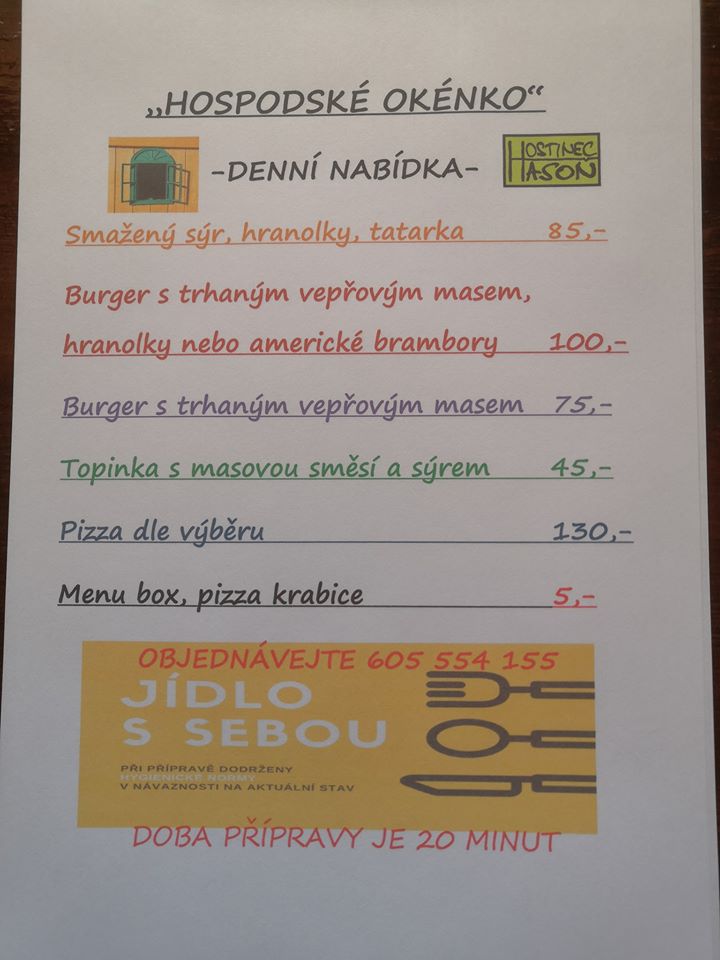 „HOSPODSKÉ OKÉNKO“
-DENNÍ NABÍDKA-
HOSTINEC
HASOŇ
Smažený sýr, hranolky, tatarka 85,-
Burger s trhaným vepřovým masem,
hranolky nebo americké brambory 100,-
Burger s trhaným vepřovým masem 75,-
Topinka s masovou směsí a sýrem 45,-
Pizza dle výběru 130,-
Menu box, pizza krabice 5,-
OBJEDNÁVEJTE 605 554 155
JÍDLO
S SEBOU
PŘI PŘÍPRAVĚ DODRŽENY
HYGIENICKÉ NORMY
V NÁVAZNOSTI NA AKTUÁLNÍ STAV
DOBA PŘÍPRAVY JE 20 MINUT